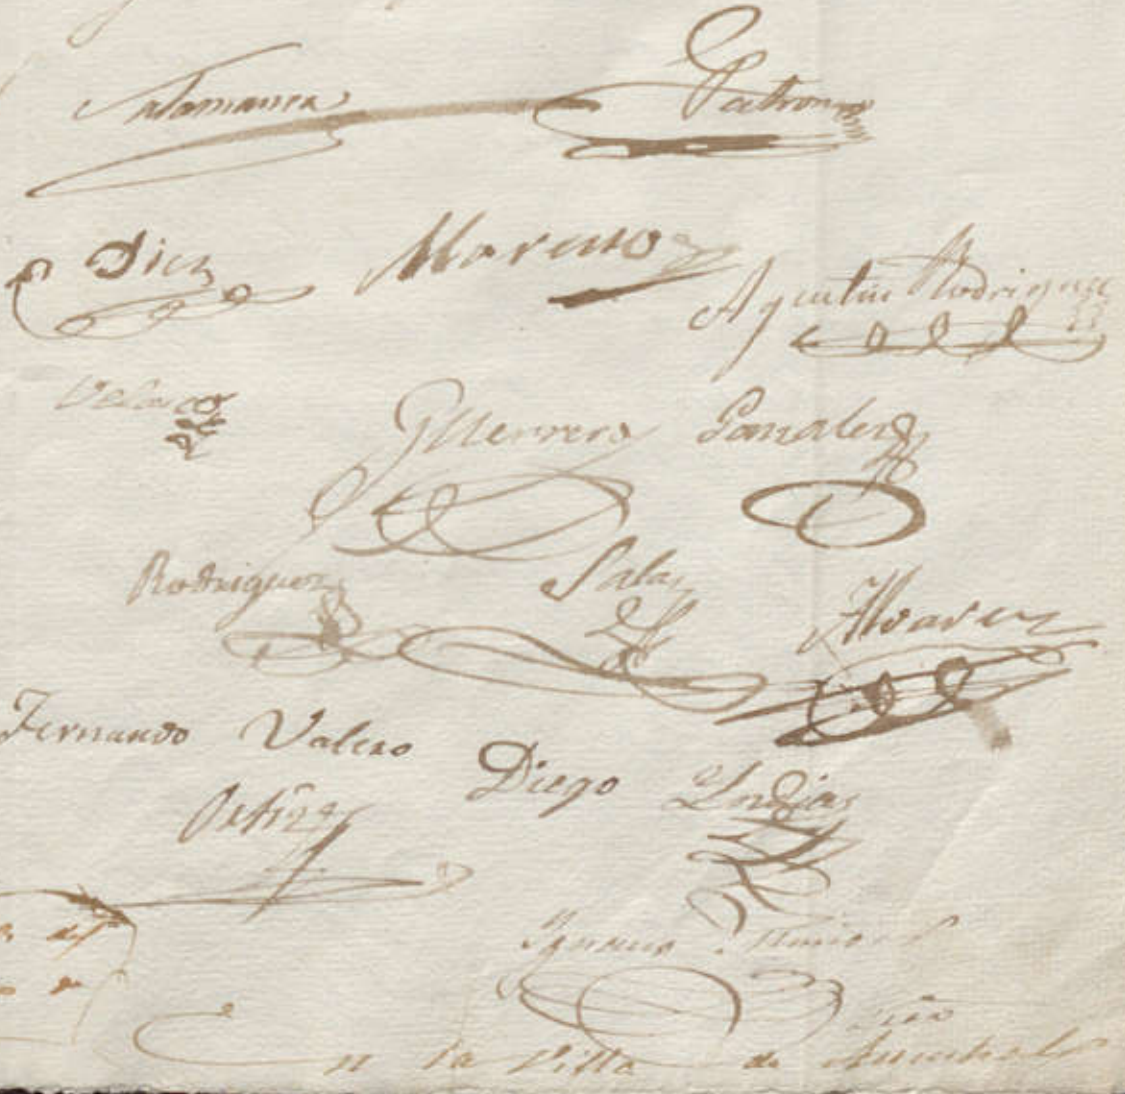 Salamanca Patron
Diez Moreno
Agustin Rodriguez
Velasco
Guerrero Gonzalez
Rodriguez Salas
Alvarez
Fernando Valero
Diego Yndias
Ortiz
Ygnacio
En la Villa de